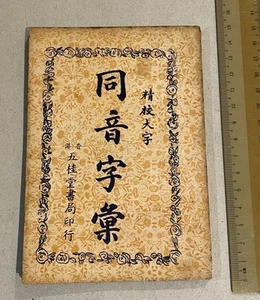 精校大字
同音字彙
香港五桂堂書局印行